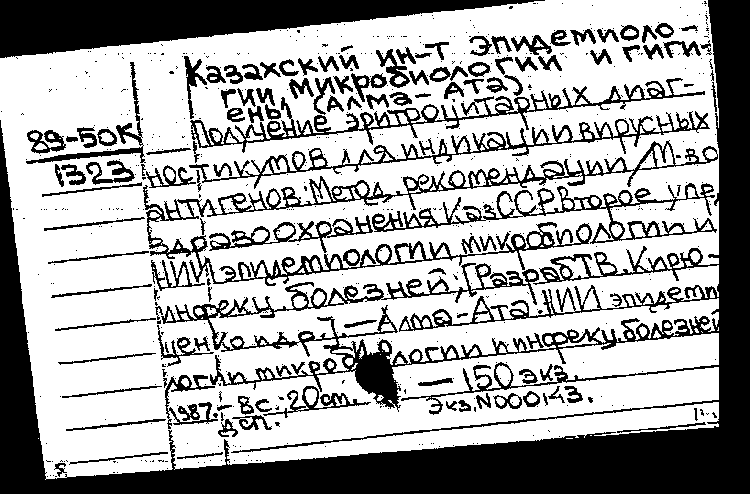 Казахский ин-т эпидемиоло-
гии, микробиологии и гиги-
ены (Алма-Ата).
Получение эритроцитарных диаг-
89-50К
1323
ностикумов для индикации вирусных
антигенов: Метод. рекомендации / М-во
здравоохранения КазССР. Второе упр.,
НИИ эпидемиологии, микробиологии и
инфекц. болезней; [Разраб. Т.В. Кирю-
щенко и др.]. — Алма-Ата: НИИ эпидеми
логии, микробиологии и инфекц. болезней
1987. – 8 с.; 20 см. — 150 экз.
Дсп. Экз. N000143.